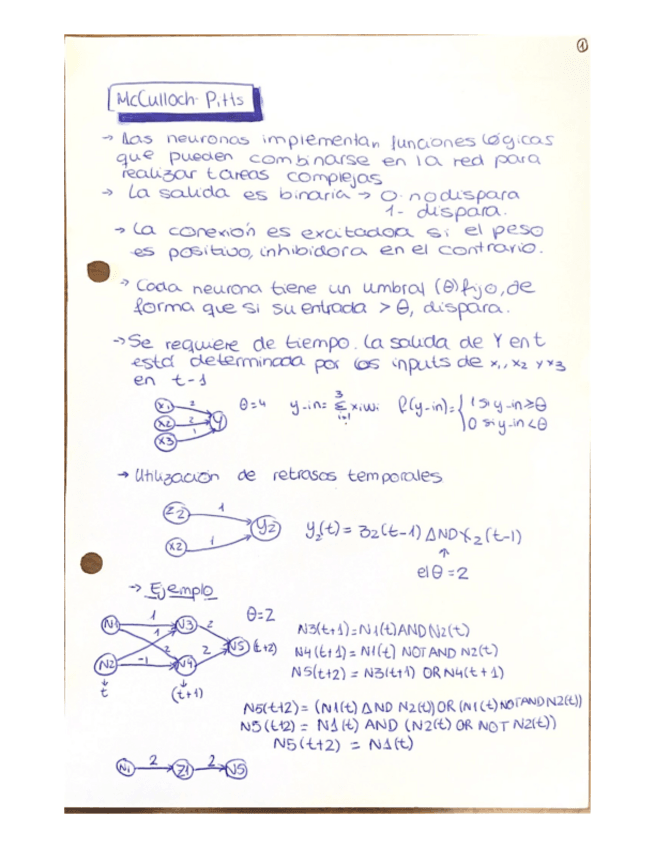 1
McCulloch-Pitts
→ Las neuronas implementan funciones lógicas
que pueden combinarse en la red para
realizar tareas complejas
→ La salida es binaria → 0- no dispara
1- dispara.
→ La conexión es excitadora si el peso
es positivo, inhibidora en el contrario.
→ Cada neurona tiene un umbral (θ) fijo, de
forma que si su entrada > θ, dispara.
→ Se requiere de tiempo. La salida de Y en t
está determinada por los inputs de x1, x2 y x3
en t-1
x1 2
x2 2 Y
x3 1
θ=4 y-in= 3 Σ i=1 xiwi f(y-in)= { 1 si y-in≥θ
0 si y-in<θ
→ Utilización de retrasos temporales
z2 1
x2 1 Y2
Y2(t) = z2(t-1) AND X2(t-1)
↑
el θ=2
→ Ejemplo
θ=2
N1 1 N3 2
1 2 N5 (t+2)
N2 -1 N4 2
↓ ↓
t (t+1)
N3(t+1)=N1(t) AND N2(t)
N4(t+1)= N1(t) NOT AND N2(t)
N5(t+2) = N3(t+1) OR N4(t+1)
N5(t+2)= (N1(t) AND N2(t)) OR (N1(t) NOT AND N2(t))
N5(t+2) = N1(t) AND (N2(t) OR NOT N2(t))
N5(t+2) = N1(t)
N1 2→ Z1 2→ N5